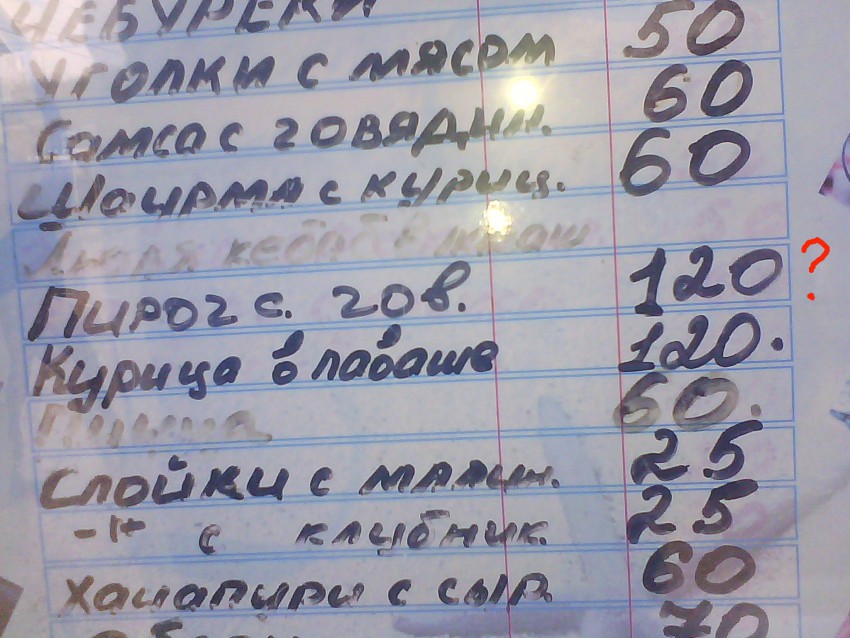 ЧЕБУРЕКИ
УГОЛКИ С МЯСОМ 50
Самса с говядин. 60
Шаурма с куриц. 60
Люля кебаб в лаваш
Пирог с. гов. 120 ?
Курица в лаваше 120.
Пицца 60.
Слойки с малин. 25
-||- с клубник. 25
Хачапури с сыр. 60
70